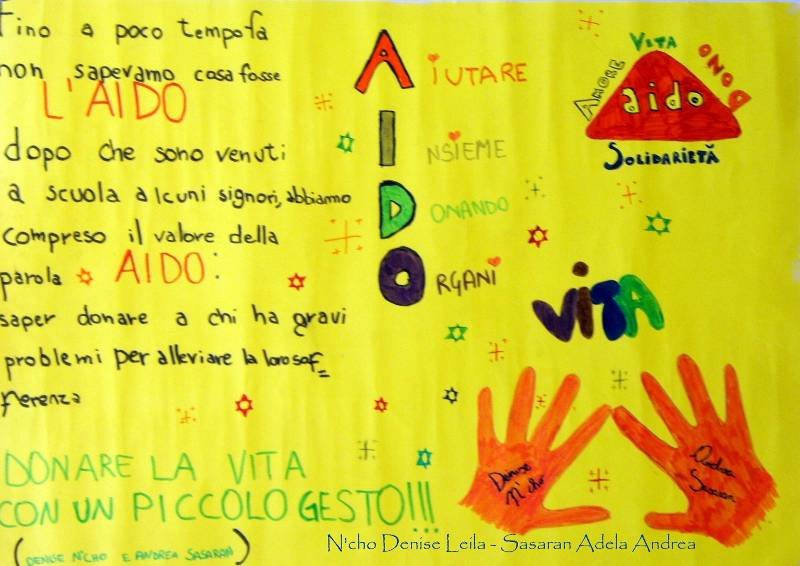 Fino a poco tempo fa
non sapevamo cosa fosse
L'AIDO
dopo che sono venuti
a scuola alcuni signori, abbiamo
compreso il valore della
parola AIDO:
saper donare a chi ha gravi
problemi per alleviare la loro sof=
ferenza
DONARE LA VITA
CON UN PICCOLO GESTO!!!
(DENISE N'CHO E ANDREA SASARAN)
AIUTARE
INSIEME
DONANDO
ORGANI
AMORE
VITA
DONO
aido
SOLIDARIETÀ
VITA
Denise
N'cho
Andrea
Sasaran
N'cho Denise Leila - Sasaran Adela Andrea